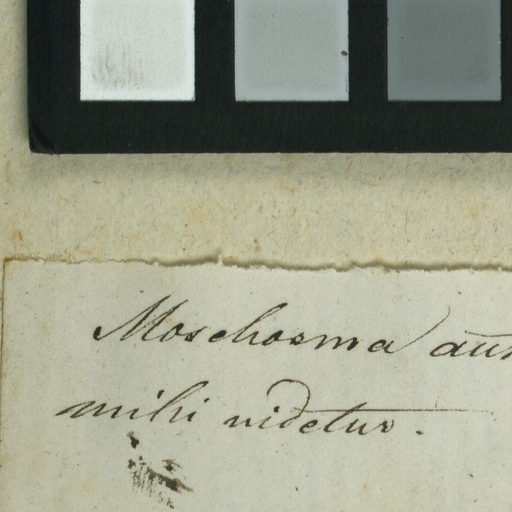 Moschosma
mihi videtur.